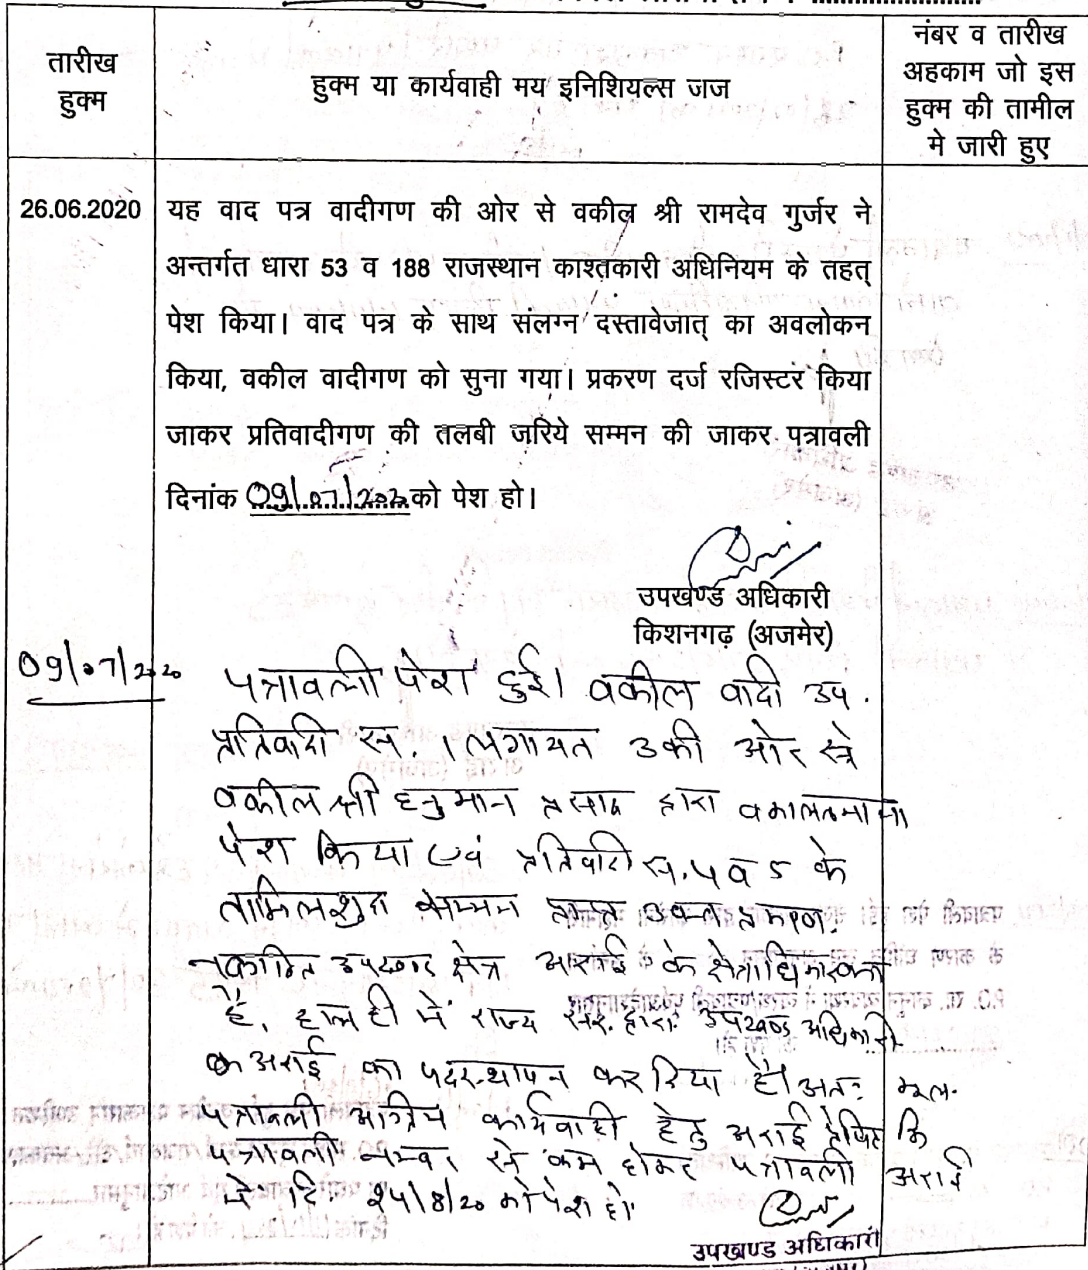 तारीख
हुक्म
हुक्म या कार्यवाही मय इनिशियल्स जज
नंबर व तारीख
अहकाम जो इस
हुक्म की तामील
मे जारी हुए
26.06.2020
यह वाद पत्र वादीगण की ओर से वकील श्री रामदेव गुर्जर ने
अन्तर्गत धारा 53 व 188 राजस्थान काश्तकारी अधिनियम के तहत्
पेश किया। वाद पत्र के साथ संलग्न दस्तावेजात् का अवलोकन
किया, वकील वादीगण को सुना गया। प्रकरण दर्ज रजिस्टर किया
जाकर प्रतिवादीगण की तलबी जरिये सम्मन की जाकर पत्रावली
दिनांक 09/07/2020 को पेश हो।
उपखण्ड अधिकारी
किशनगढ़ (अजमेर)
09/07/2020
पत्रावली पेश हुई। वकील वादी उप.
प्रतिवादी स. 1 लगायत 3 की ओर से
वकील श्री हनुमान प्रसाद द्वारा वकालतनामा
पेश किया एवं प्रतिवादी स. 4 व 5 के
तामिलशुदा सम्मन प्राप्त
उपखण्ड क्षेत्र अराई के क्षेत्राधिकार का
है, हाल ही में राज्य सर. द्वारा उपखण्ड अधिकारी
अराई का पदस्थापन कर दिया है। अतः मूल
पत्रावली अग्रिम कार्यवाही हेतु अराई प्रेषित कि
पत्रावली नम्बर से कम होकर पत्रावली अराई
में दि. 24/8/20 को पेश हो।
उपखण्ड अधिकारी